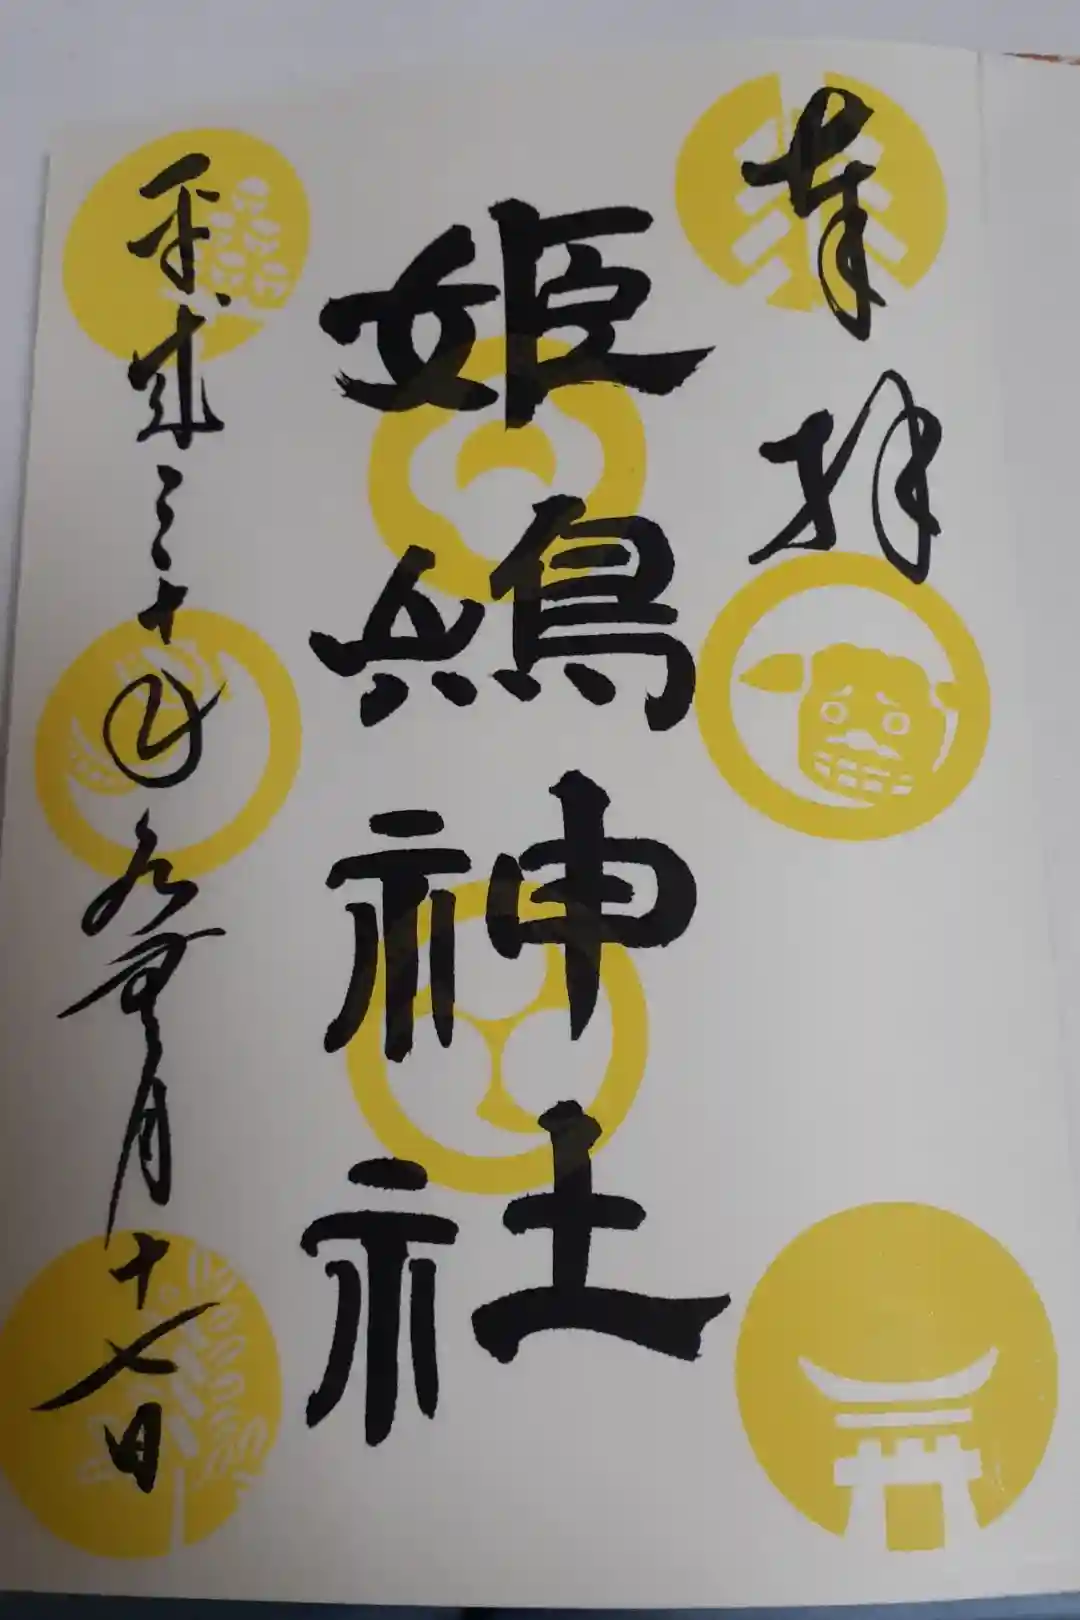 奉拝
姫嶋神社
平成三十年 月十七日